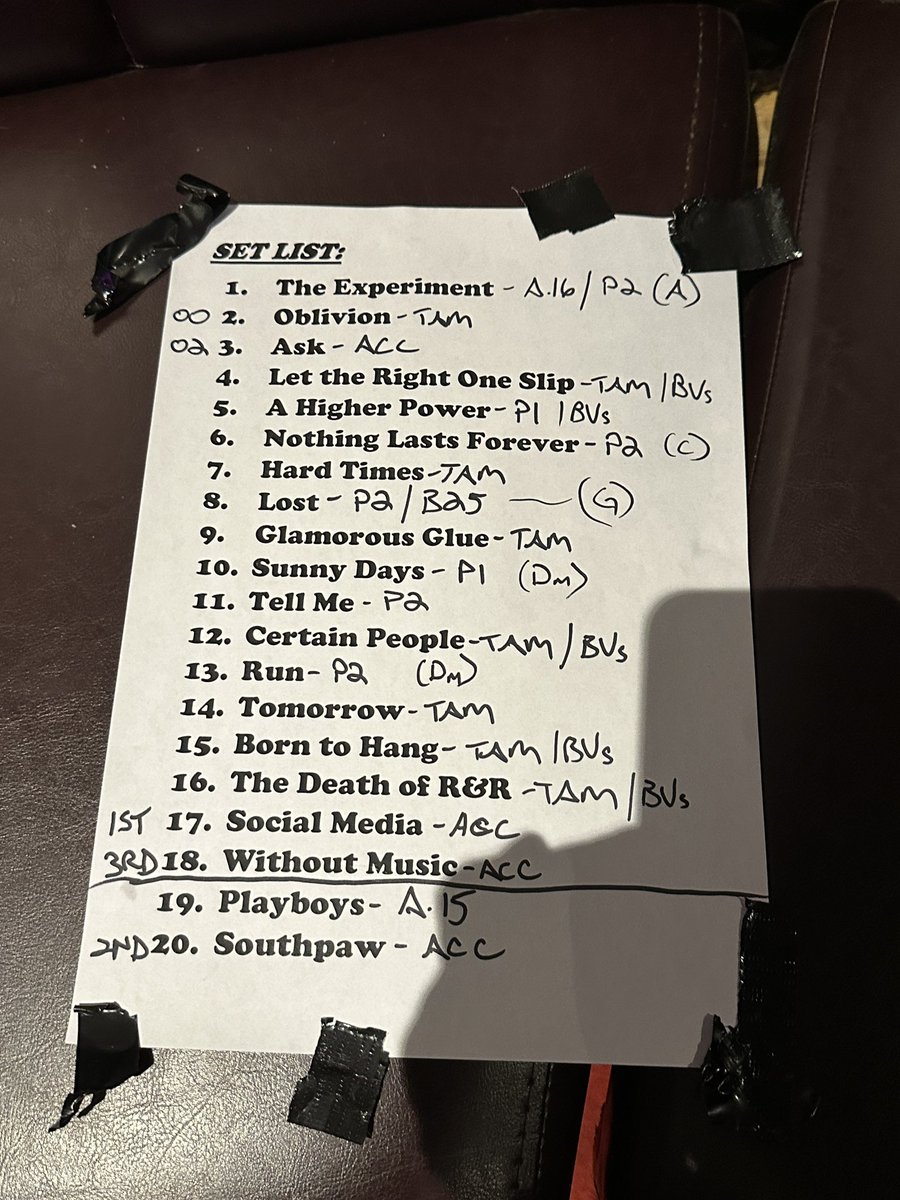 SET LIST:
1. The Experiment - A.16 / P2 (A)
00 2. Oblivion - TAM
02 3. Ask - ACC
4. Let the Right One Slip - TAM / BVs
5. A Higher Power - P1 / BVs
6. Nothing Lasts Forever - P2 (C)
7. Hard Times - TAM
8. Lost - P2 / B25 — (G)
9. Glamorous Glue - TAM
10. Sunny Days - P1 (Dm)
11. Tell Me - P2
12. Certain People - TAM / BVs
13. Run - P2 (Dm)
14. Tomorrow - TAM
15. Born to Hang - TAM / BVs
16. The Death of R&R - TAM / BVs
1ST 17. Social Media - ACC
3RD 18. Without Music - ACC
19. Playboys - A.15
2ND 20. Southpaw - ACC